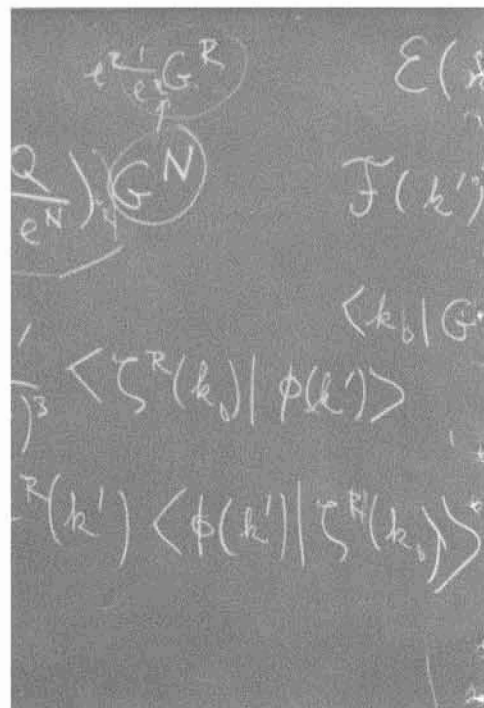 G^R ℰ(
Q/e^N) G^N ℱ(k')
<k_b| G
)^3 <ζ^R(k_b)| φ(k')>
^R(k') <φ(k')| ζ^R(k_b)>